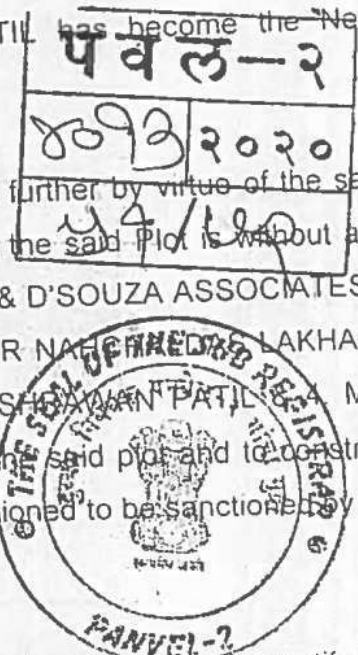 TIL has become the "Ne
पवल-२
४०९३ २०२०
further by virtue of the sa
the said Plot is without a
& D'SOUZA ASSOCIATES
LAKHA
SHRAWAN PATIL & 4. M
the said plot and to constr
ioned to be sanctioned by
THE SEAL OF THE SUB REGISTRAR
PANVEL-2